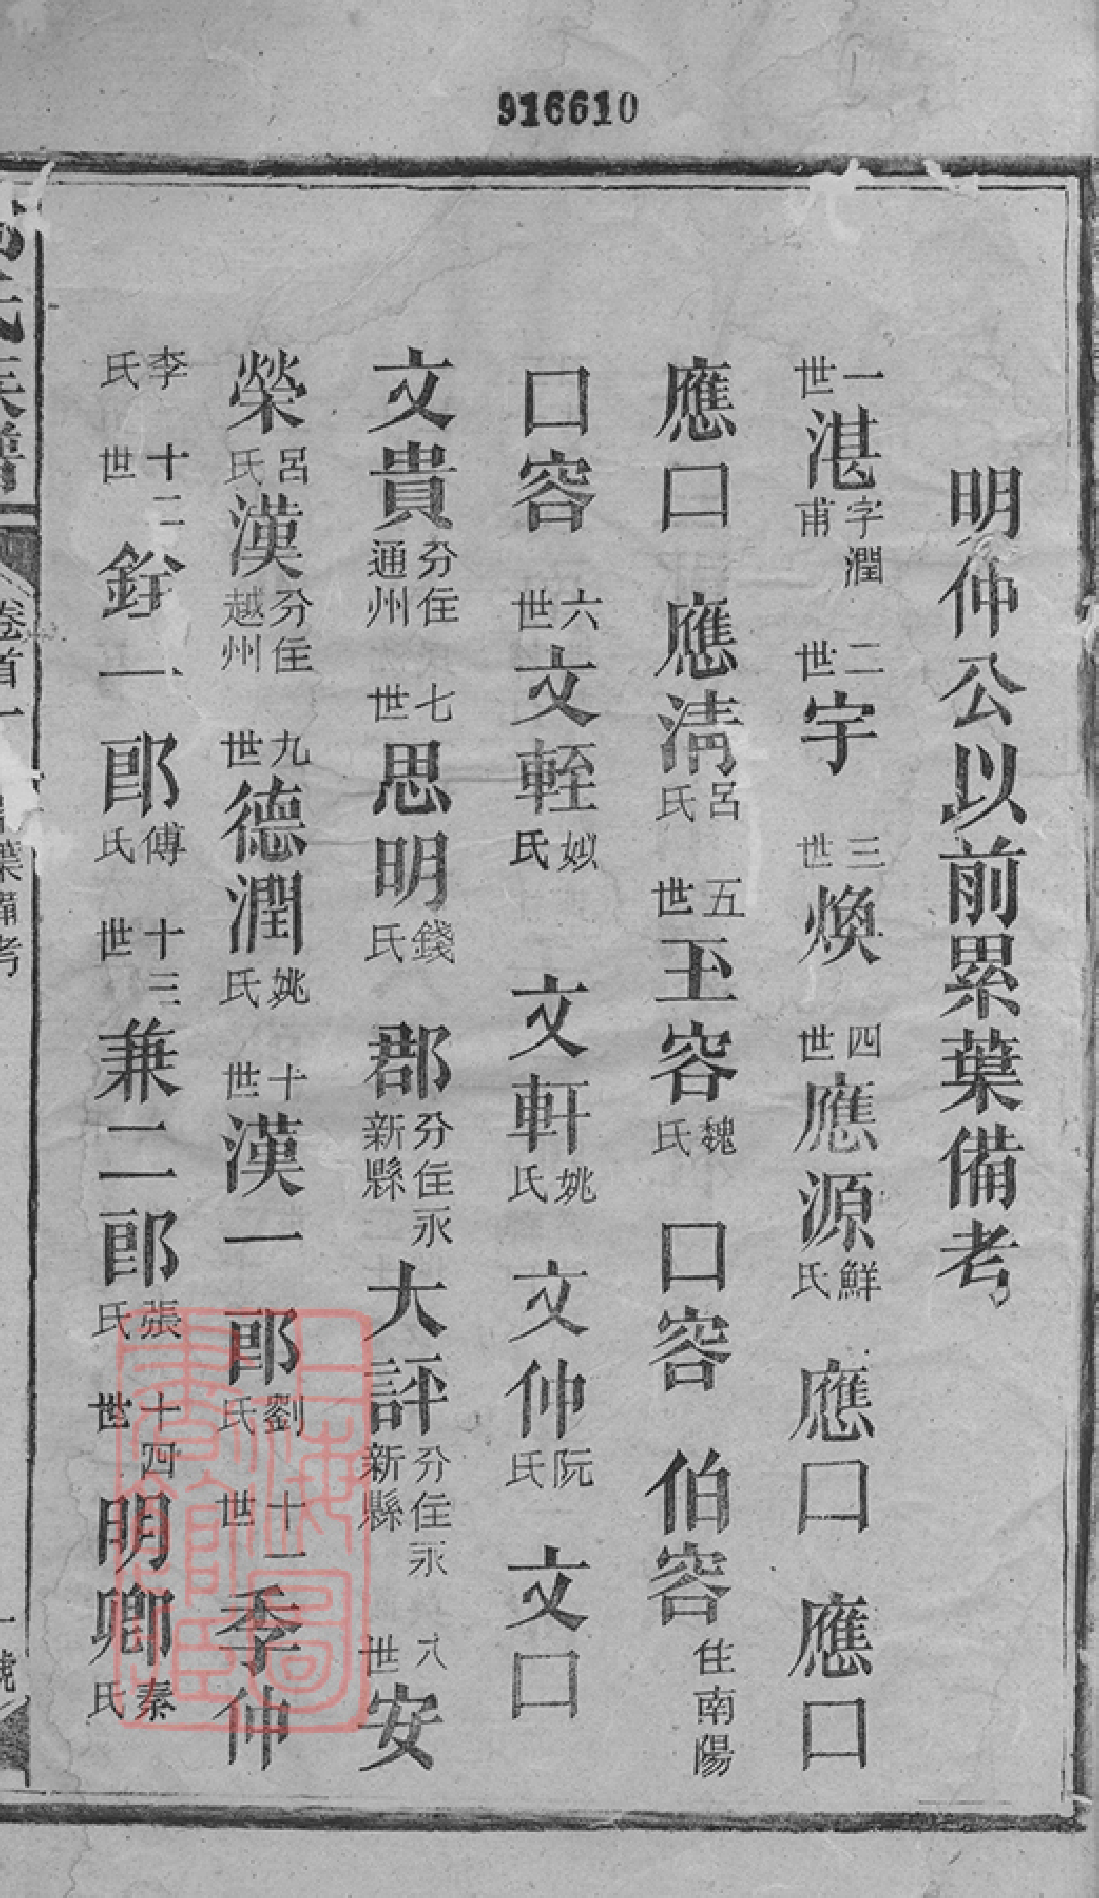 916610
明仲公以前累葉備考
一世湛字潤甫 二世宇 三世煥 四世應源鮮氏 應口 應口
應口 應淸呂氏 五世玉容魏氏 口容 伯容住南陽
口容 六世文輊姒氏 文軒姚氏 文仲阮氏 文口
文貴分住通州 七世思明錢氏 郡分住永新縣 大評分住永新縣 八世安
榮呂氏 漢分住越州 九世德潤姚氏 十世漢一郎劉氏 十一世季仲
李氏 十二世銓一郎傅氏 十三世兼二郎張氏 十四世明卿秦氏
氏族譜 卷首一 葉備考 一 號
上海圖書館藏